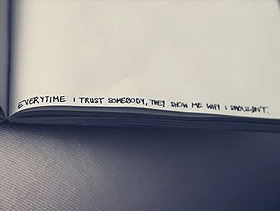 EVERYTIME I TRUST SOMEBODY, THEY SHOW ME WHY I SHOULDN'T.